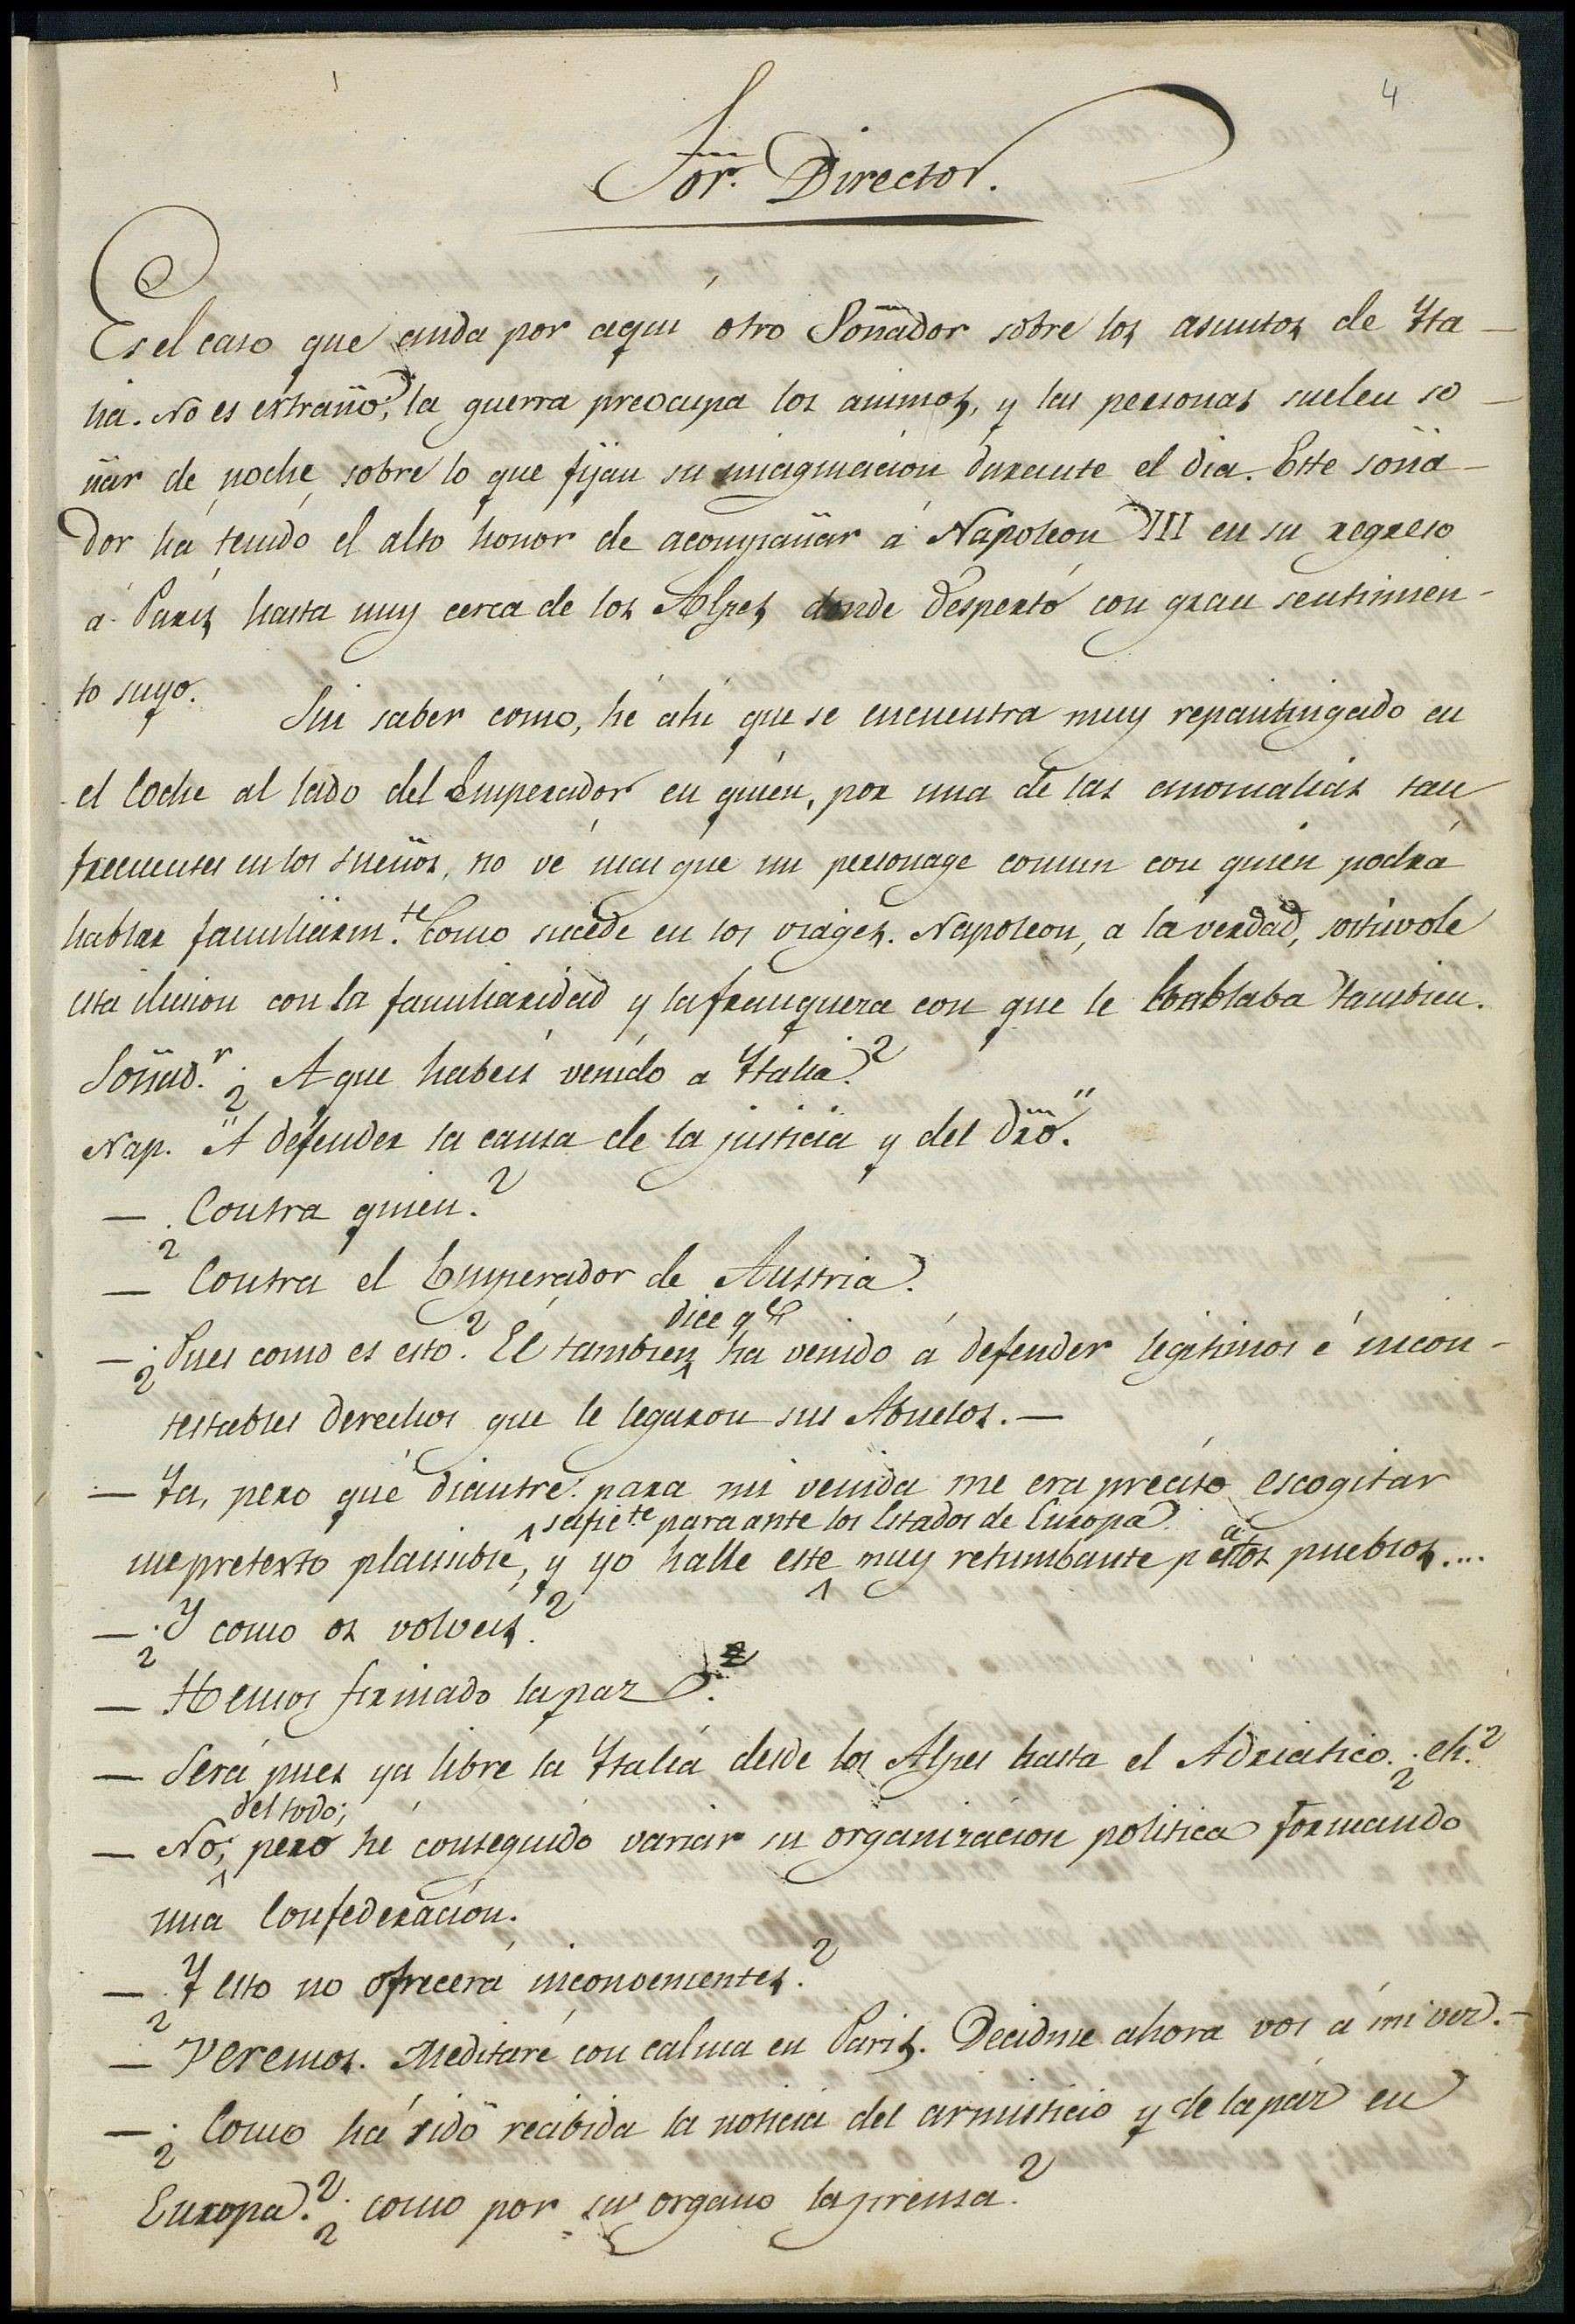 4
Sor. Director.
Es el caso que anda por aquí otro Soñador sobre los asuntos de Ita-
lia. No es extraño; la guerra preocupa los animos, y las personas suelen so-
ñar de noche sobre lo que fijan su imaginacion durante el dia. Este soña-
dor há tenido el alto honor de acompañar á Napoleon III en su regreso
á Paris hasta muy cerca de los Alpes donde despertó con gran sentimien-
to suyo.
Sin saber como, hé ahí que se encuentra muy repantingado en
el Coche al lado del Emperador en quien, por una de las anomalias tan
frecuentes en los sueños, no vé mas que un personage comun con quien podrá
hablar familiarm.te Como sucede en los viages. Napoleon, a la verdad, sostúvole
esta ilusion con la familiaridad y la franqueza con que le hablaba tambien.
Soñad.r ¿A que habeis venido a Italia?
Nap. "A defender la causa de la justicia y del dro."
— ¿Contra quien?
— Contra el Emperador de Austria.
dice qe
— ¿Pues como es esto? El tambien ha venido á defender legitimos é incon-
testables derechos que le legaron sus Abuelos. —
— Ya, pero qué diantre. para mi venida me era preciso escogitar
sufic.te para ante los Estados de Europa
un pretexto plausible, y yo halle este muy retumbante pa estos pueblos....
— ¿Y como os volveis?
— Hemos firmado la paz.
— Será pues ya libre la Italia desde los Alpes hasta el Adriatico. ¿eh?
del todo;
— No; pero hé conseguido variar su organizacion politica formando
una Confederacion.
— ¿Y esto no ofrecerá inconvenientes?
— Veremos. Meditaré con calma en Paris. Decidme ahora vos á mi vez. —
— ¿Como há sido recibida la noticia del armisticio y de la paz en
Europa? ¿como por su organo la prensa?